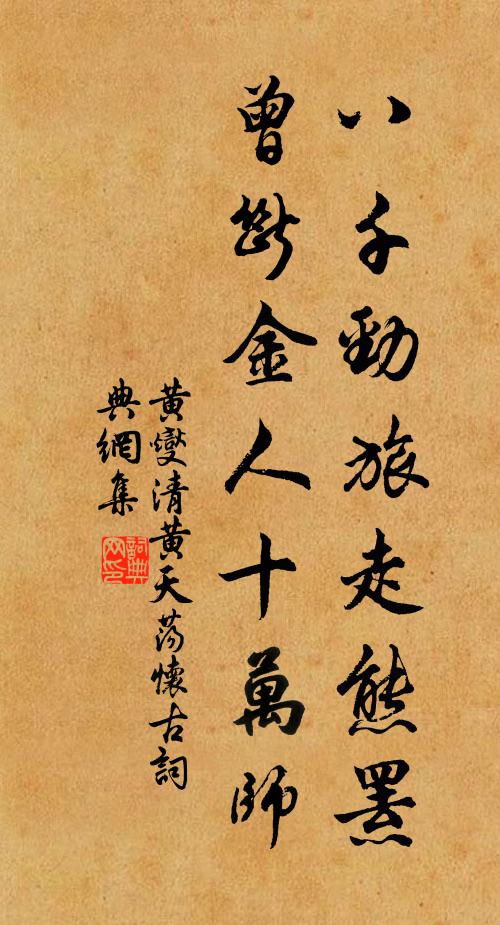 八千勁旅走熊羆
曾斷金人十萬師
黃燮清黃天蕩懷古詞
典網集
詞典
網印